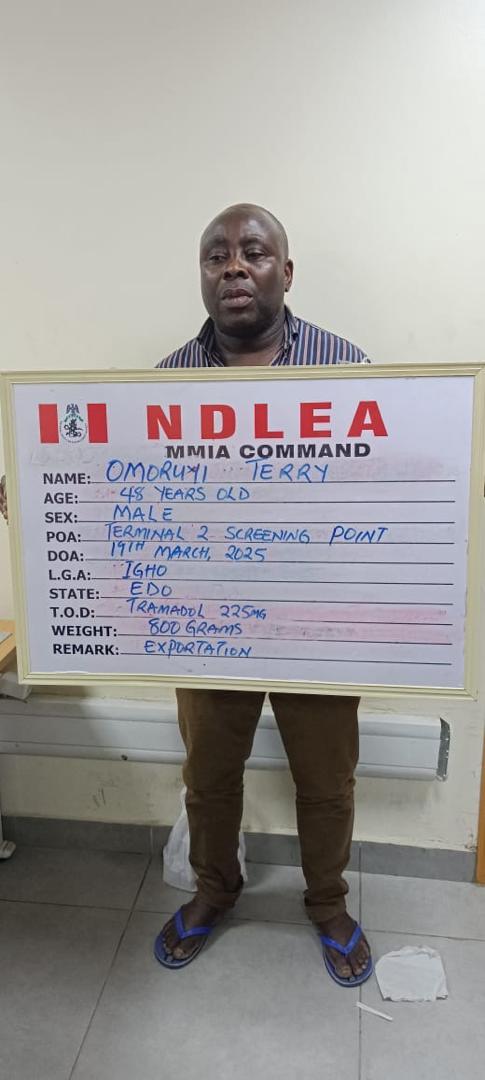 NDLEA
MMIA COMMAND
NAME: OMORUYI TERRY
AGE: 48 YEARS OLD
SEX: MALE
POA: TERMINAL 2 SCREENING POINT
DOA: 19TH MARCH, 2025
L.G.A: IGHO
STATE: EDO
T.O.D: TRAMADOL 225MG
WEIGHT: 800 GRAMS
REMARK: EXPORTATION